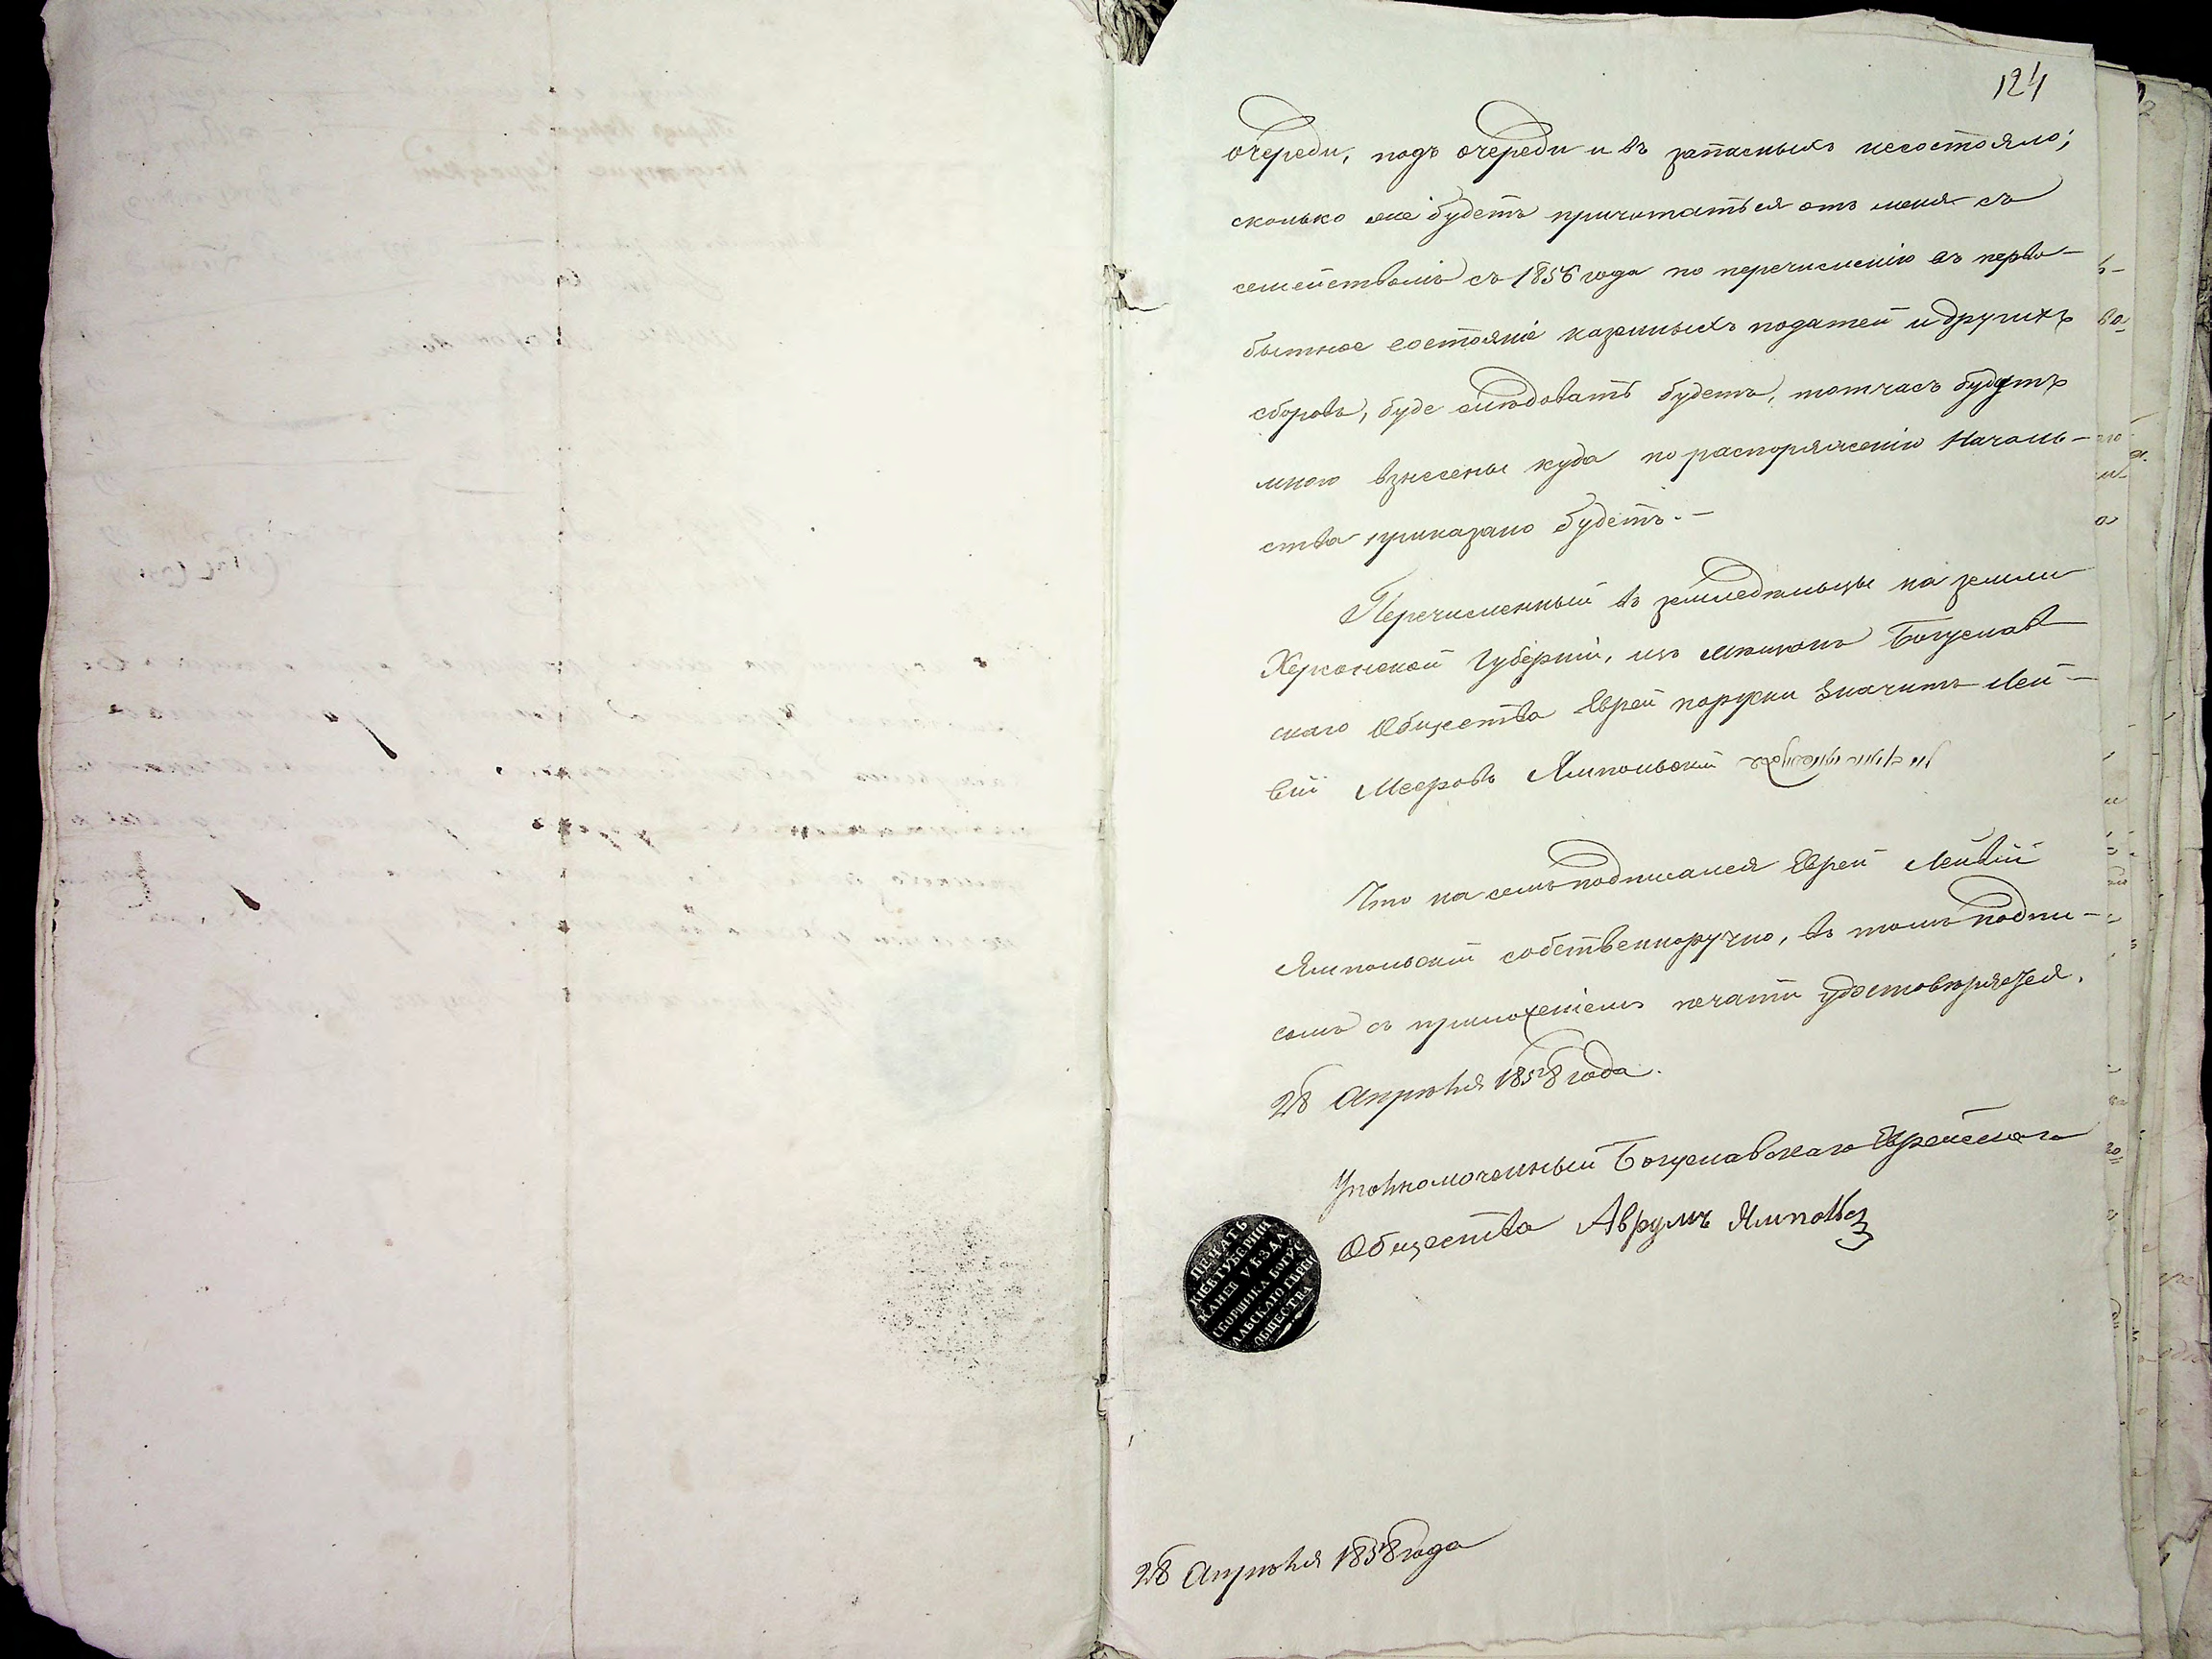 124
очереди, подъ очереди и въ запасныхъ несостояло;
сколько же будетъ причитаться отъ меня съ
семействомъ съ 1858 года по перечисленію въ перво-
бытное состояніе казенныхъ податей и другихъ
сборовъ, буде слѣдовать будетъ, тотчасъ будутъ
мною взнесены куда по распоряженію Началь-
ства приказано будетъ.-
Перечисленный въ земледѣльцы на земли
Херсонской Губерніи, изъ мѣщанъ Богуслав
скаго Общества Еврей Лей-
вій Мееровъ Ямпольскій
Что на семъ подписался Еврей Лейвій
Ямпольскій собственноручно, въ томъ подпи-
сомъ съ приложеніемъ печати удостовѣряется.
28 Апрѣля 1858 года.
Уполномоченный Богуславскаго Еврейскаго
Общества Аврумъ
ПЕЧАТЬ
КІЕВ ГУБЕРНІИ
КАНЕВ УѢЗДА
СБОРЩИКА БОГУС
ЛАВСКАГО ЕВРЕИ
ОБЩЕСТВА
28 Апрѣля 1858 года